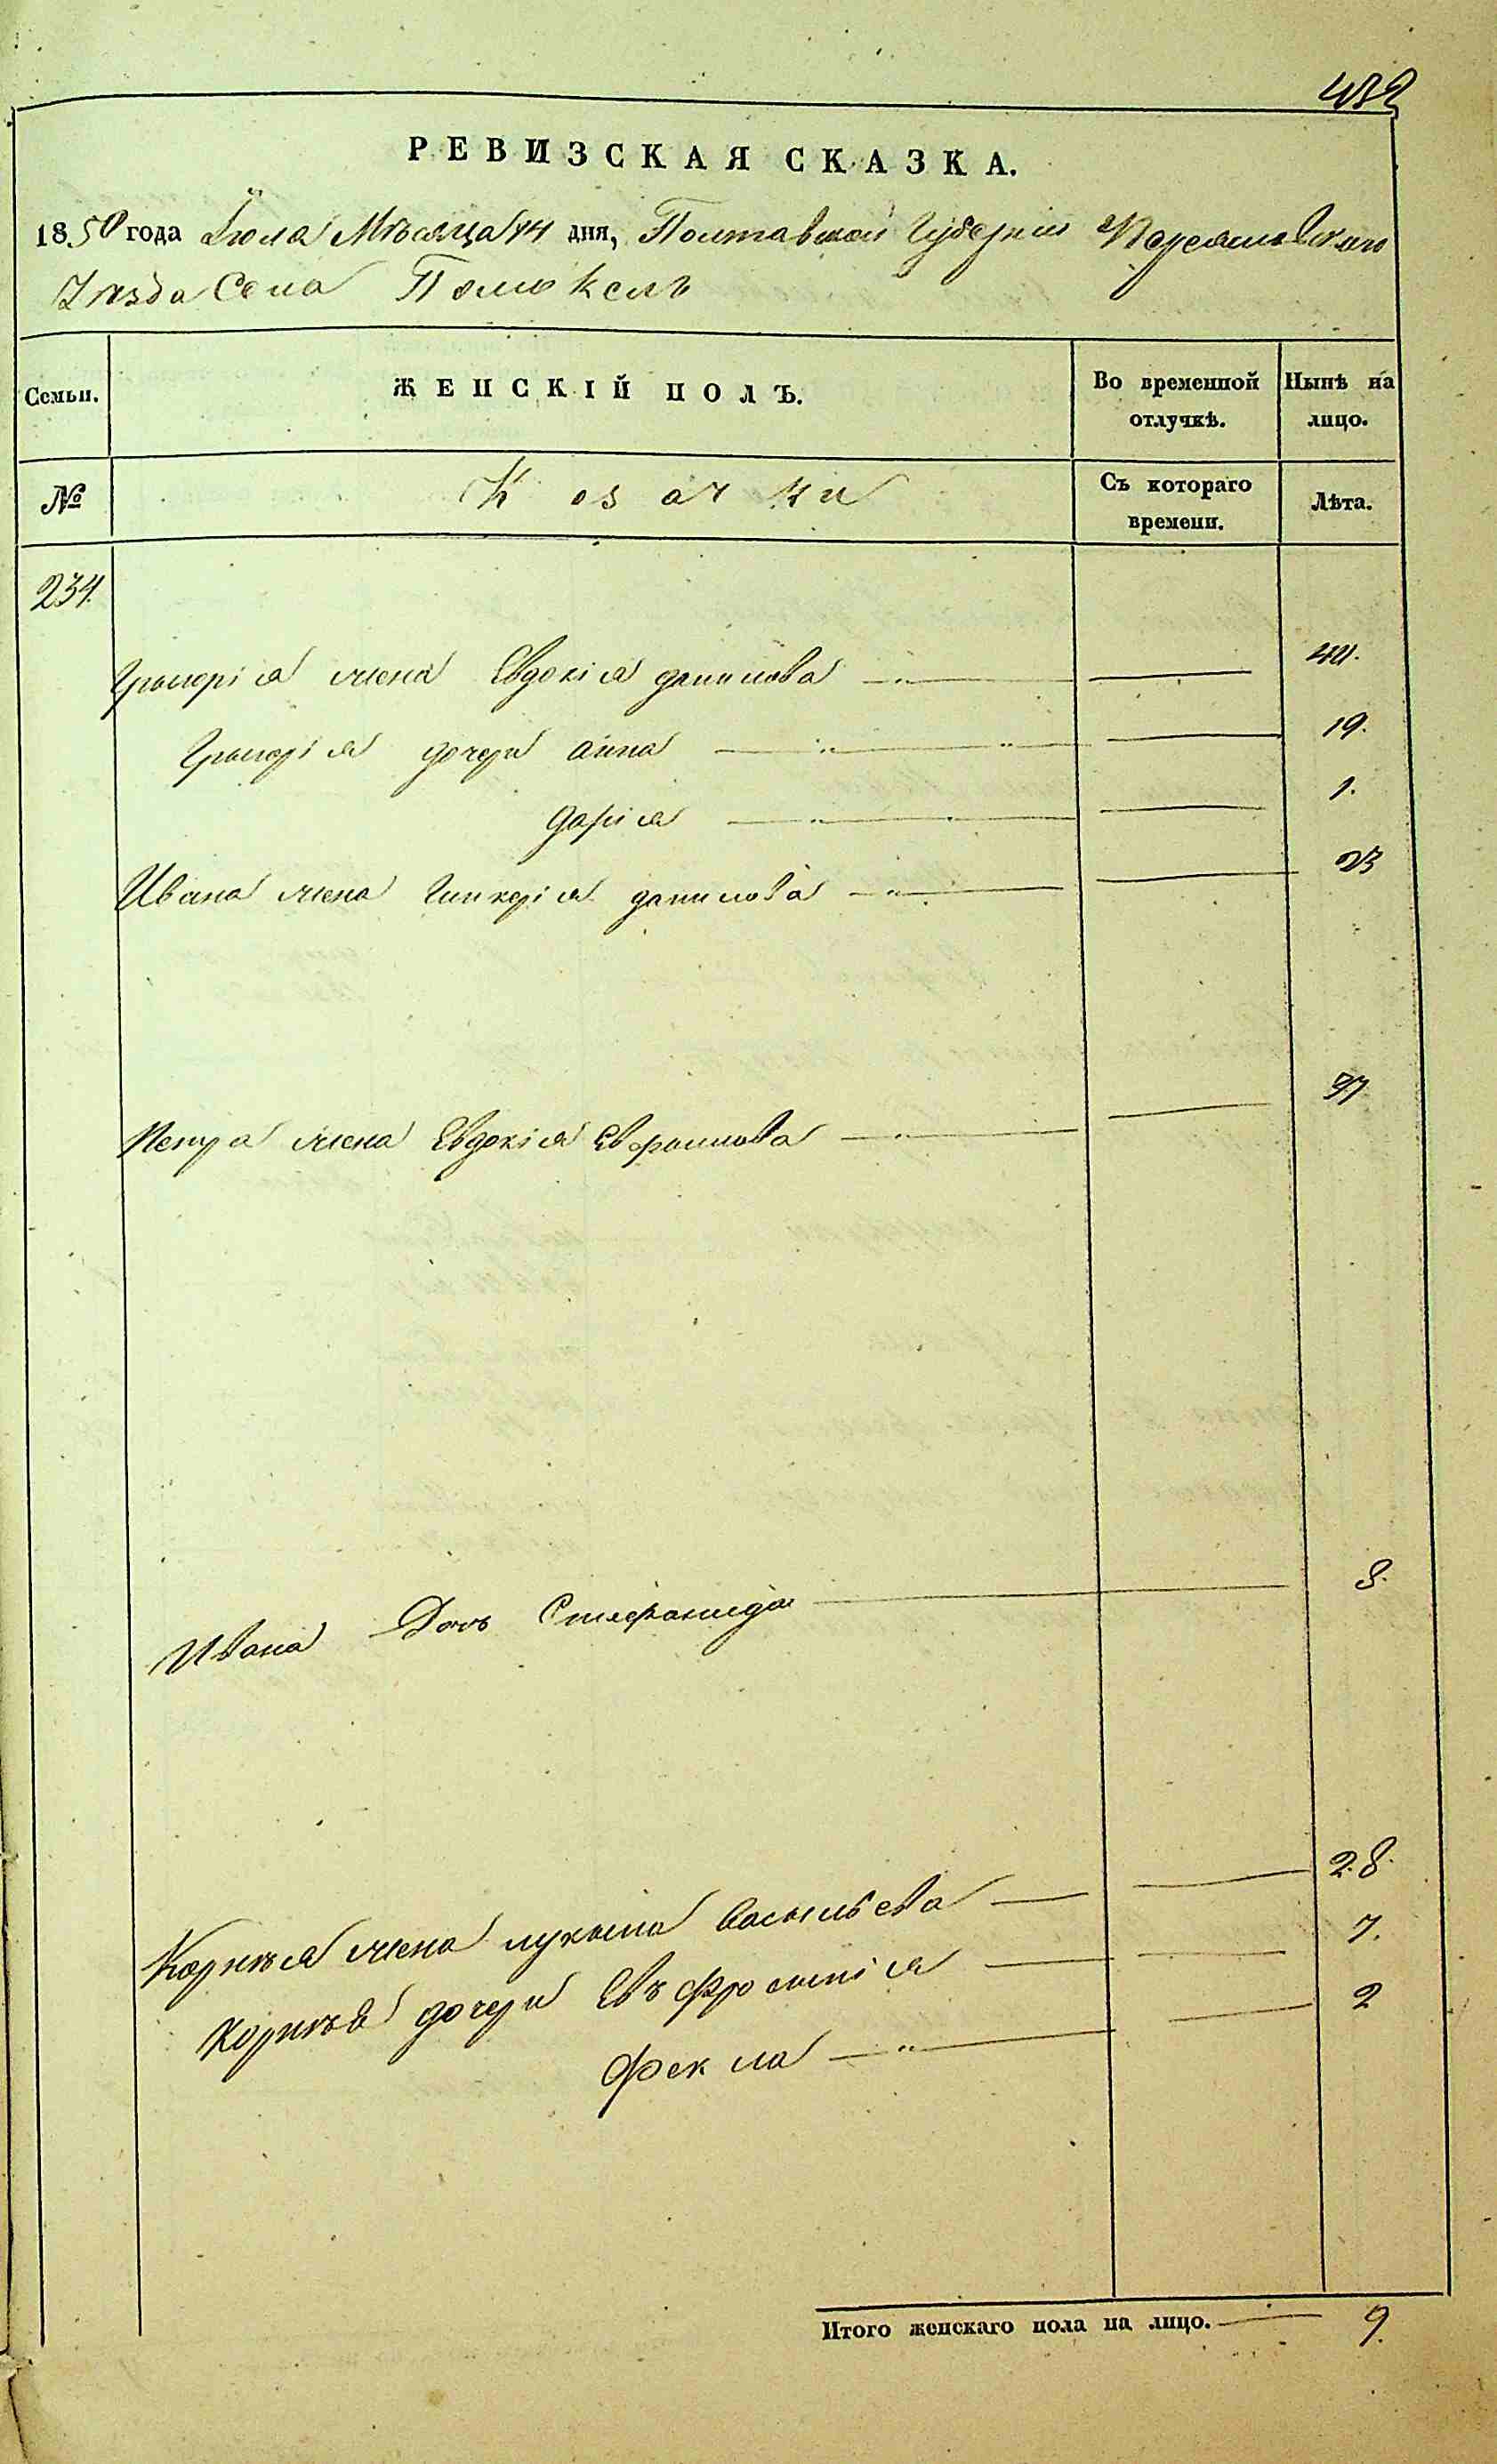 432
РЕВИЗСКАЯ СКАЗКА.
1850 года Іюля Мѣсяца 14 дня, Полтавской Губерніи Переяславского
Уѣзда Села Помоклъ
Семьи. ЖЕНСКІЙ ПОЛЪ. Во временной отлучкѣ. Нынѣ на лицо.
№ Козачки Съ котораго времени. Лѣта.
234.
Григорія жена Евдокія данилова 44.
Григорія дочери анна 19.
дарія 1.
Ивана жена Гликерія данилова 23
Петра жена Евдокія Ефраимова
Ивана Дочь Стефанида 8.
Корнѣя жена лукія Васильева 28.
Корнѣя дочери Евъфросинія 7.
Фекла 2
Итого женскаго пола на лицо. 9.